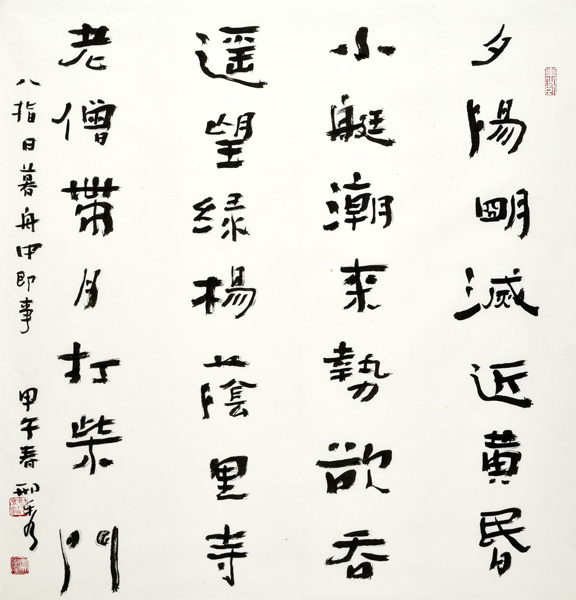 夕陽明滅近黃昏
小艇潮来勢欲吞
遥望緑楊蔭里寺
老僧帶月打柴門
八指日暮舟中即事
甲午春